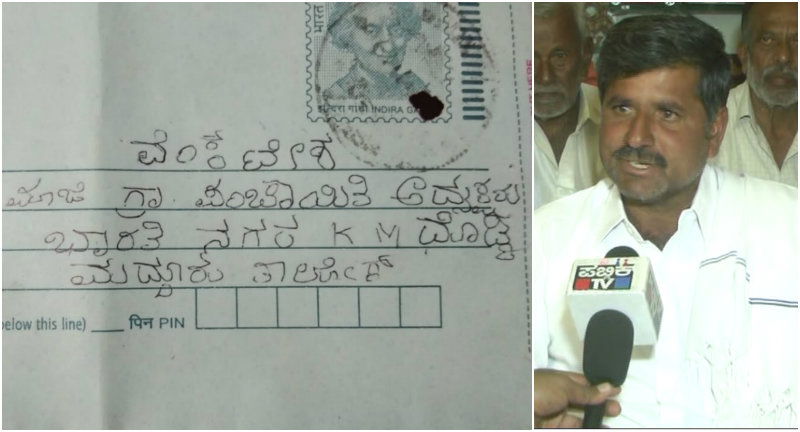 भारत
इन्दिरा गांधी INDIRA GA
ವೆಂಕಟೇಶ
ಮಾಜಿ ಗ್ರಾ ಪಂಚಾಯಿತಿ ಅಧ್ಯಕ್ಷರು
ಭಾರತಿ ನಗರ K M ದೊಡ್ಡಿ
ಮದ್ದೂರು ತಾಲೋಕ್
below this line) पिन PIN
ಪಬ್ಲಿಕ್
TV